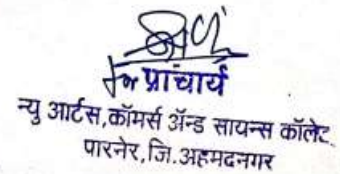 For प्राचार्य
न्यु आर्टस,कॉमर्स ॲन्ड सायन्स कॉलेट.
पारनेर,जि.अहमदनगर